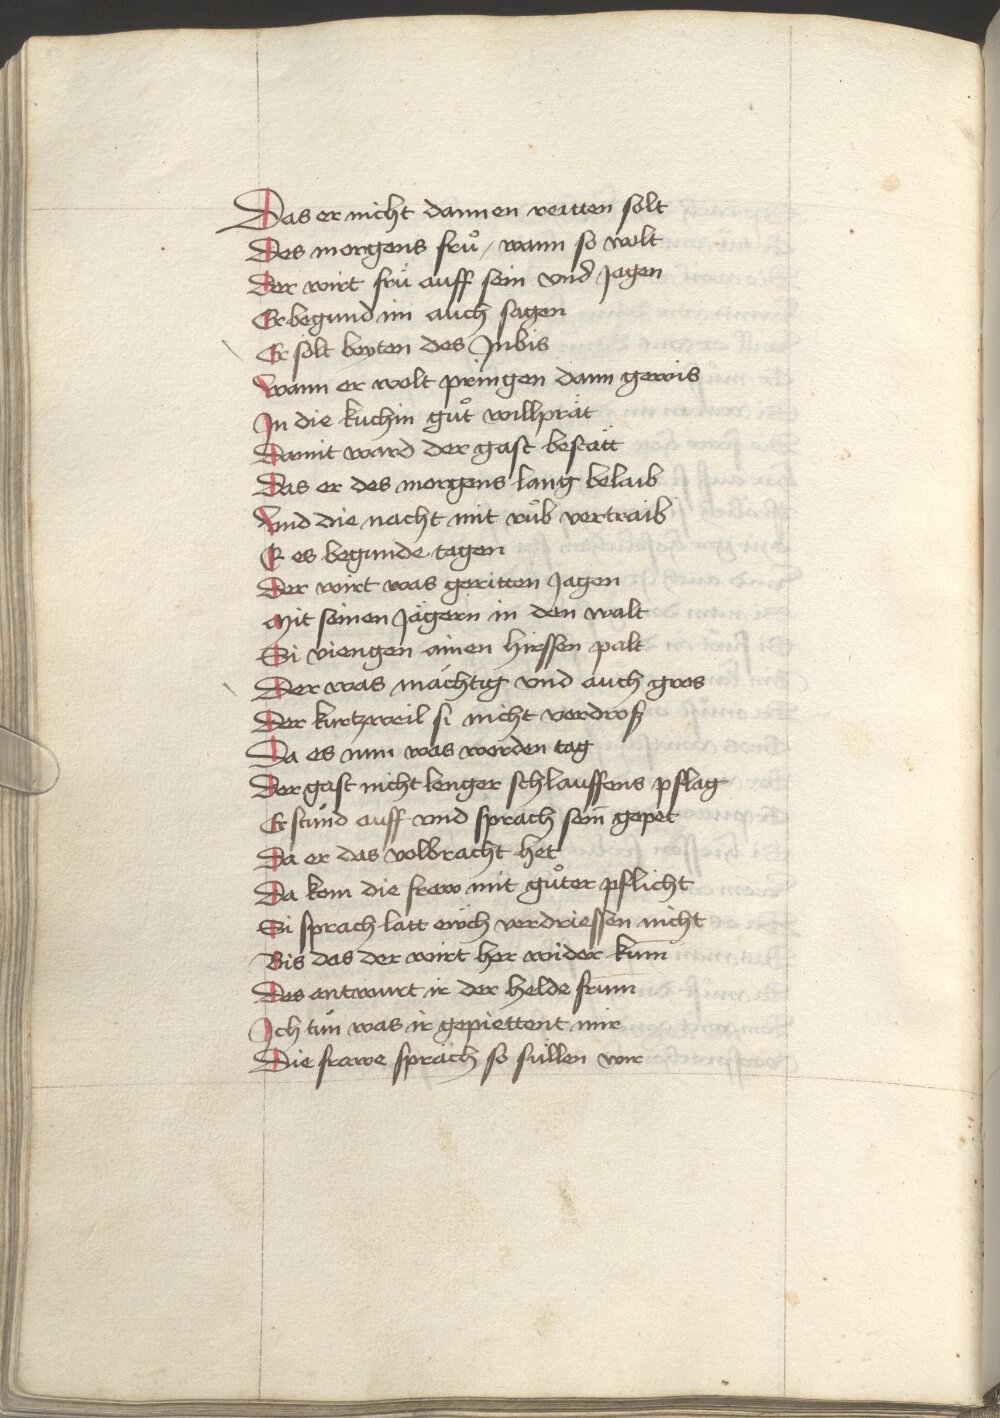 Das er nicht dannen reitten solt
Des morgens frůͦ / wann so wolt
Der wirt frü auff sein vnd Jagen
Er begund im auch sagen
Er solt beyten des Jnbis
Wann er wolt pringen dann gewis
Jn die kuchin guͦt willprät
Damit ward der gast bestätt
Das er des morgens lang belaib
Vnd die nacht mit rüb vertraib
E es begunde tagen
Der wirt was geritten Jagen
Mit seinen Jägern in den walt
Si viengen ainen hirssen palt
Der was mächtig vnd auch gros
Der kurtzweil si nicht verdroß
Da es nun was worden tag
Der gast nicht lenger schlauffens pflag
Er stůnd auff vnd sprach sein gepet
Da er das volbracht het
Da kom die fraw mit guͦter pflicht
Si sprach latt eẅch verdriessen nicht
Bis das der wirt her wider kum
Des antwurt ir der helde frum
Jch tůn was ir gepiettent mir
Die frawe sprach so süllen wir